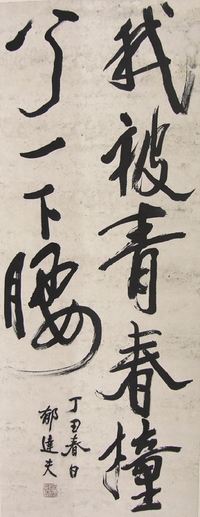 我被青春撞
兮一下腰
丁丑春日
郁達夫